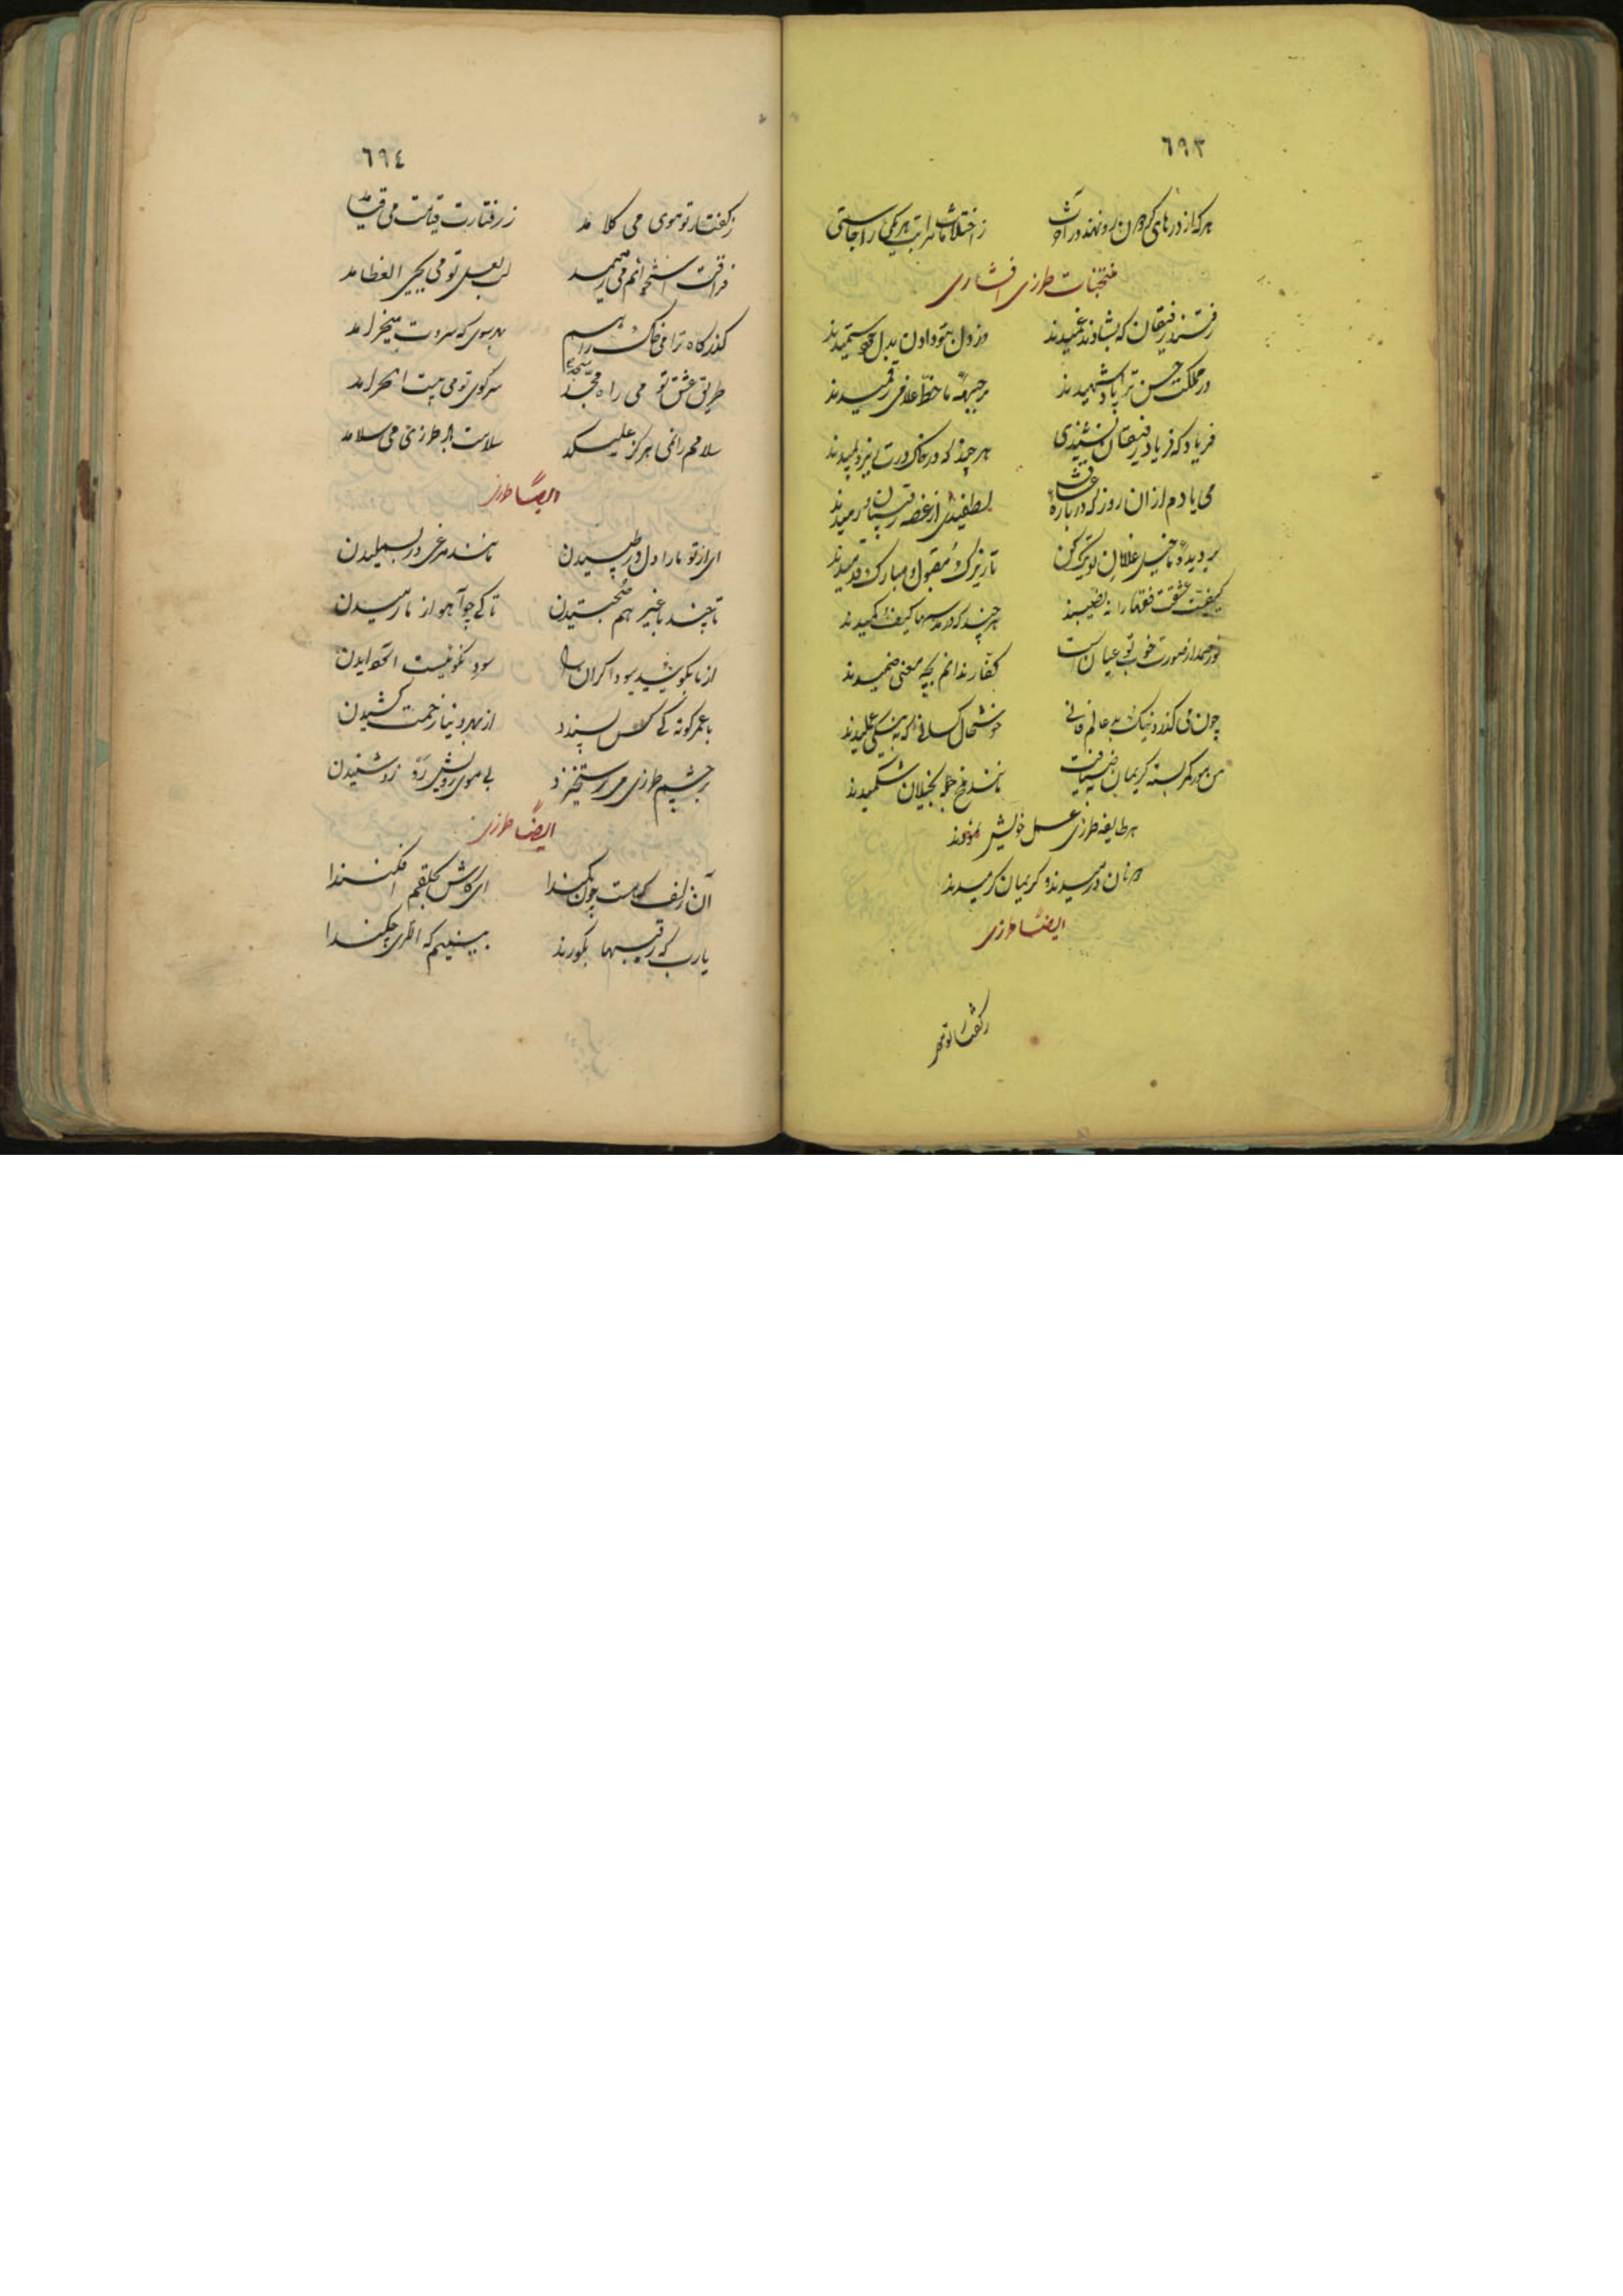 ٦٩٣
هر که از در های گردون رو نهند در آتش
ز اختلافات مراتب هر یکی را جاستی
منتخبات طرزی افشاری
رفتند رفیقان که بشادند غمیدند
در مملکت حسن ترا پادشهیدند
بر جبهه ما خط غلامی رقمیدند
فریاد که فریاد رفیقان نشنیدی
هر چند که در خاک درت
می یادم از ان روز که درباره عشاق
لطفیدی از غصه رقیبان
بر دیده ما خیل غلامان تو
تا نیزک و مقبول و مبارک قدمیدند
کیفیت عشقت فقها را نه نصیبند
هر چند که در مدرسها کیف و کمیدند
نور صمد از صورت خوب تو عیان است
کفار ندانم بچه معنی صنمیدند
چون می گذرد نیک و بد عالم فانی
خوشحال کسانی که به نیکی علمیدند
من مور کمر بسته کریمان ضیافت
مانند ملخ جمله بخیلان شکمیدند
هر طایفه طرزی عمل خویش نمودند
و کریمان کرمیدند
ایضاً طرزی
ز گفتار تو
٦٩٤
ز گفتار تو موی می کلامد
ز رفتارت قیامت می قیامد
فراقت استخوانم می رمیمد
لب لعل تو می یحیی العظامد
گذرگاه ترا می خاک راهم
بهر سوی که سروت میخرامد
طریق عشق تو می راه مسجد
سر کوی تو می بیت الحرامد
سلامم را نمی هرگز علیکد
سلامت بر طرزی می سلامد
ایضاً طرزی
ای از تو ما را دل در طپیدن
مانند مرغی در بسملیدن
تا چند با غیر هم صحبتیدن
تا کی چو آهو از ما رمیدن
از ما بگوئید سوداگران را
سود نکو نیست
با عمر کوته کی کس پسندد
از بهر دنیا زحمت کشیدن
بر چشم طرزی می رستخیزد
بی موی رویش
ایضاً طرزی
آن زلف که هست چون کمندا
ای کاش بحلقم افکنندا
یارب که رقیبها بگورند
ببینیم که اقربا چکنندا